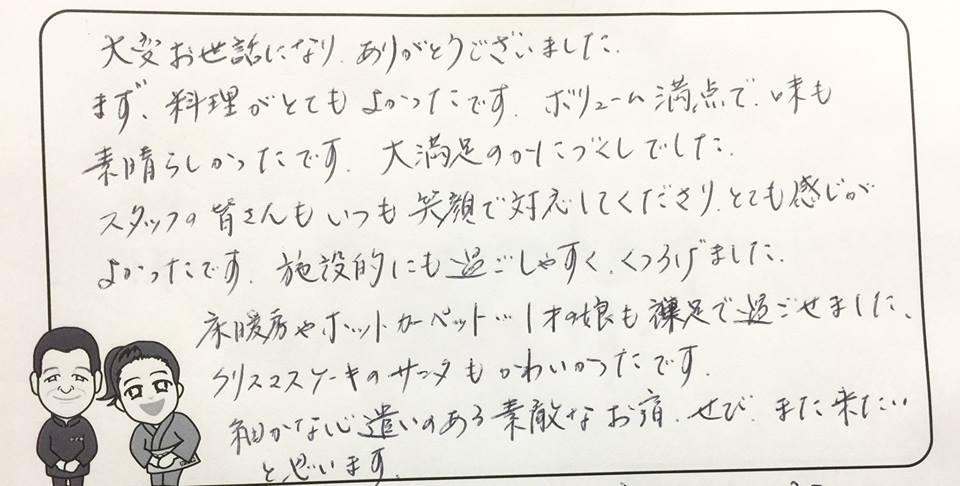 大変お世話になり、ありがとうございました。
まず、料理がとてもよかったです。ボリューム満点で、味も
素晴らしかったです。大満足のかにづくしでした。
スタッフの皆さんもいつも笑顔で対応してくださり、とても感じが
よかったです。施設的にも過ごしやすく、くつろげました。
床暖房やホットカーペット…1才の娘も裸足で過ごせました。
クリスマスケーキのサンタもかわいかったです。
細かな心遣いのある素敵なお宿、ぜひ、また来たい
と思います。